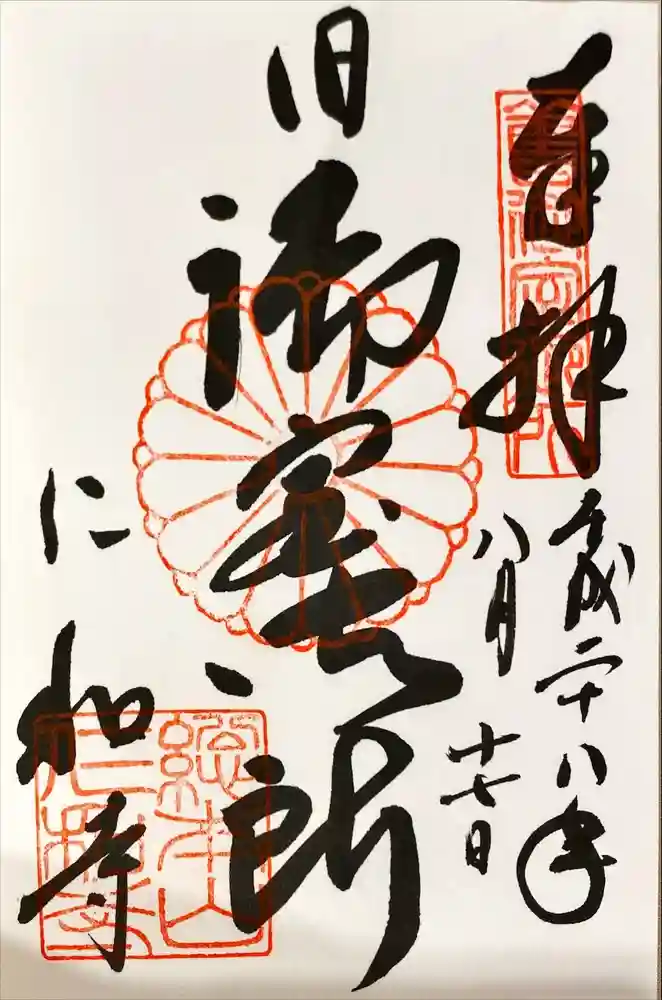 奉拝
平成二十八年
八月十七日
旧御室御所
仁和寺
総本山
仁和寺